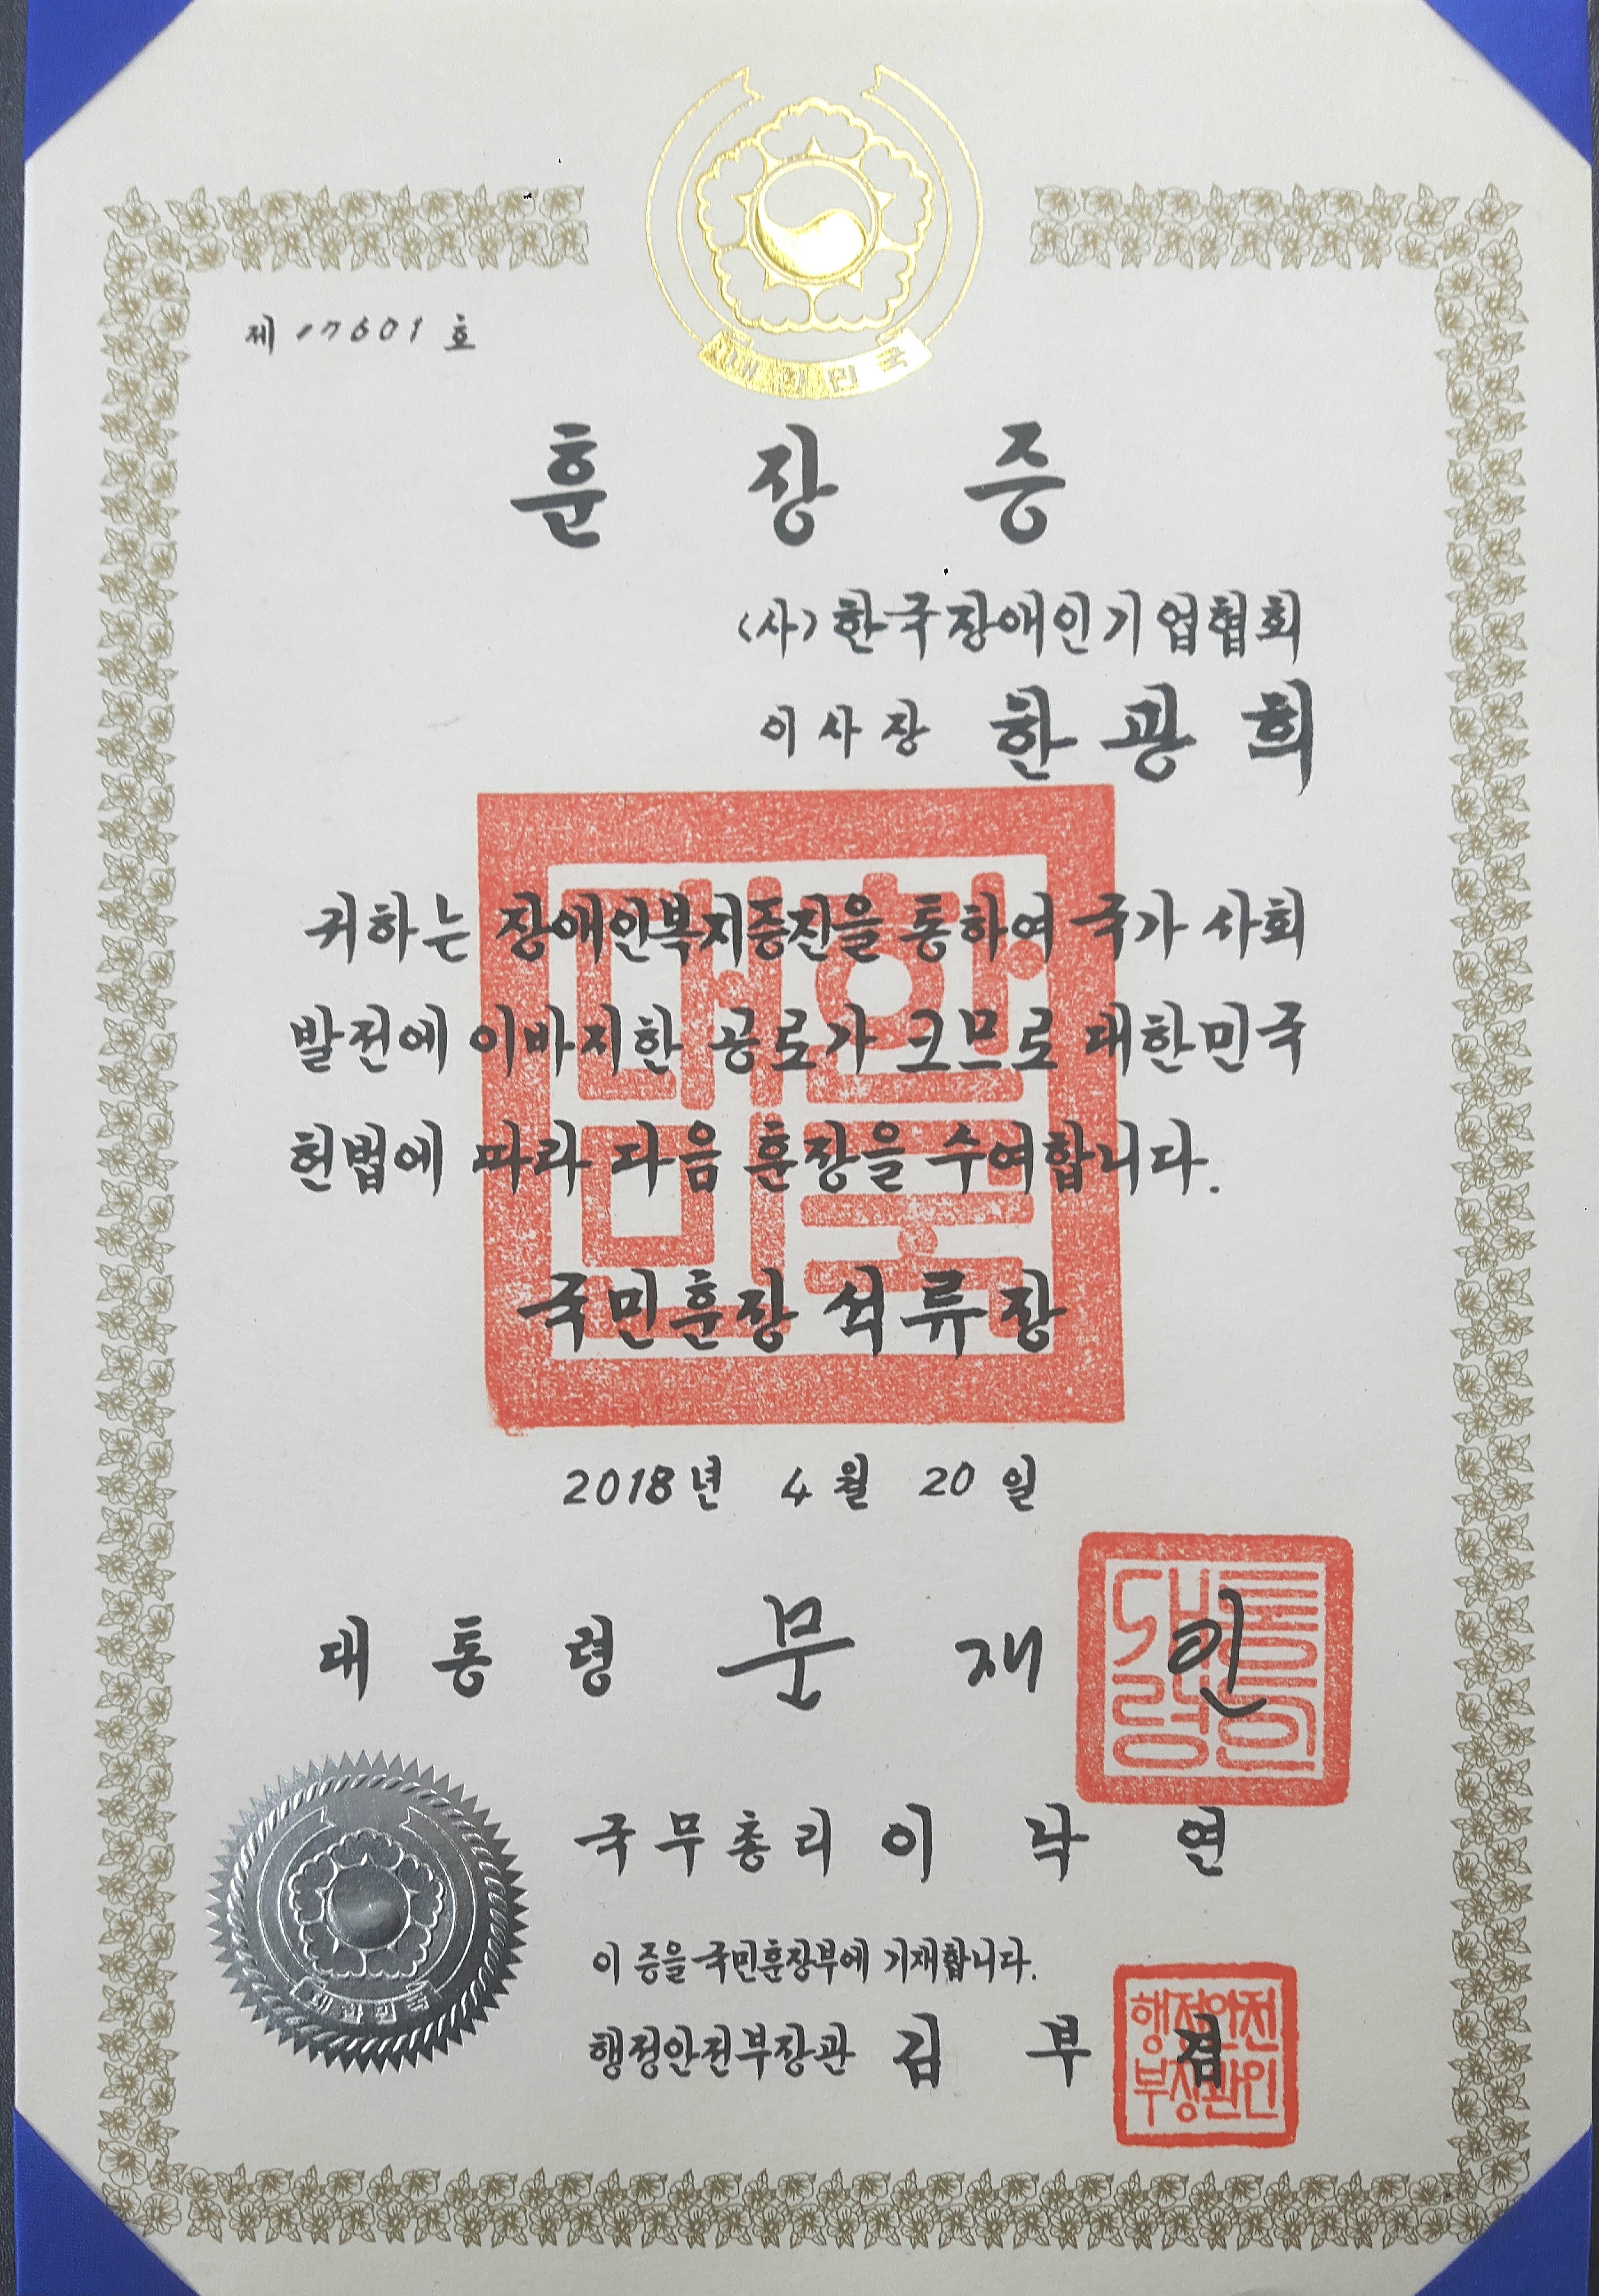 대한민국
제 17601 호
훈 장 증
(사)한국장애인기업협회
이사장 한 광 희
귀하는 장애인복지증진을 통하여 국가 사회
발전에 이바지한 공로가 크므로 대한민국
헌법에 따라 다음 훈장을 수여합니다.
국민훈장 석류장
대한
민국
2018년 4월 20일
대 통 령 문 재 인
대통
령인
국무총리 이 낙 연
이 증을 국민훈장부에 기재합니다.
대한민국
행정안전부장관 김 부 겸
행정안전
부장관인